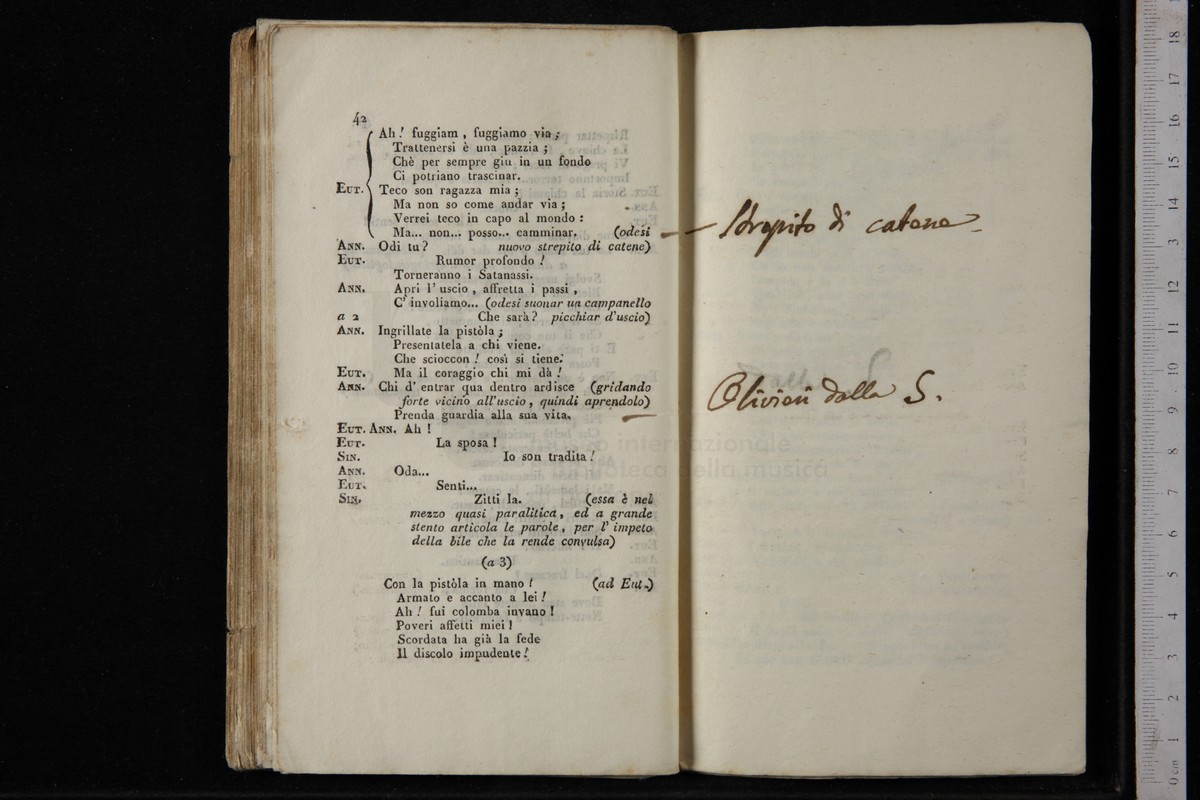 42
Ah! fuggiam, fuggiamo via;
Trattenersi è una pazzia;
Chè per sempre giu in un fondo
Ci potriano trascinar.
EUT. Teco son ragazza mia;
Ma non so come andar via;
Verrei teco in capo al mondo:
Ma... non... posso... camminar. (odesi
ANN. Odi tu? nuovo strepito di catene)
EUT. Rumor profondo!
Torneranno i Satanassi.
ANN. Apri l'uscio, affretta i passi,
C' involiamo... (odesi suonar un campanello
a 2 Che sarà? picchiar d'uscio)
ANN. Ingrillate la pistòla;
Presentatela a chi viene.
Che scioccon! così si tiene.
EUT. Ma il coraggio chi mi dà!
ANN. Chi d' entrar qua dentro ardisce (gridando
forte vicino all'uscio, quindi aprendolo)
Prenda guardia alla sua vita.
EUT. ANN. Ah!
EUT. La sposa!
SIN. Io son tradita!
ANN. Oda...
EUT. Senti...
SIN. Zitti la. (essa è nel
mezzo quasi paralitica, ed a grande
stento articola le parole, per l' impeto
della bile che la rende convulsa)
(a 3)
Con la pistòla in mano! (ad Eut.)
Armato e accanto a lei!
Ah! fui colomba invano!
Poveri affetti miei!
Scordata ha già la fede
Il discolo impudente!
Strepito di catene
Olivieri dalla S.
museo internazionale
biblioteca della musica